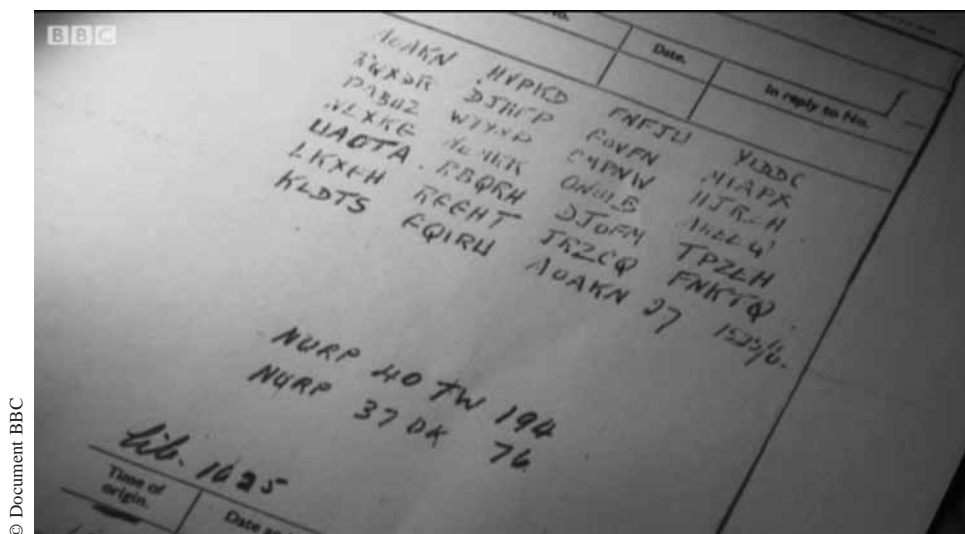 BBC
No.
Date.
In reply to No.
AOAKN HVPKD FNFJW YIDDC
RQXSR DJHFP GOVFN MIAPX
PABUZ WYYNP CMPNW HJRZH
NLXKG MEMKK ONOIB AKEEQ
UAOTA RBQRH DJOFM TPZEH
LKXGH RGGHT JRZCQ FNKTQ
KLDTS FQIRW AOAKN 27 1525/6.
NURP 40 TW 194
NURP 37 DK 76
lib. 1625
Time of
origin.
Date
© Document BBC